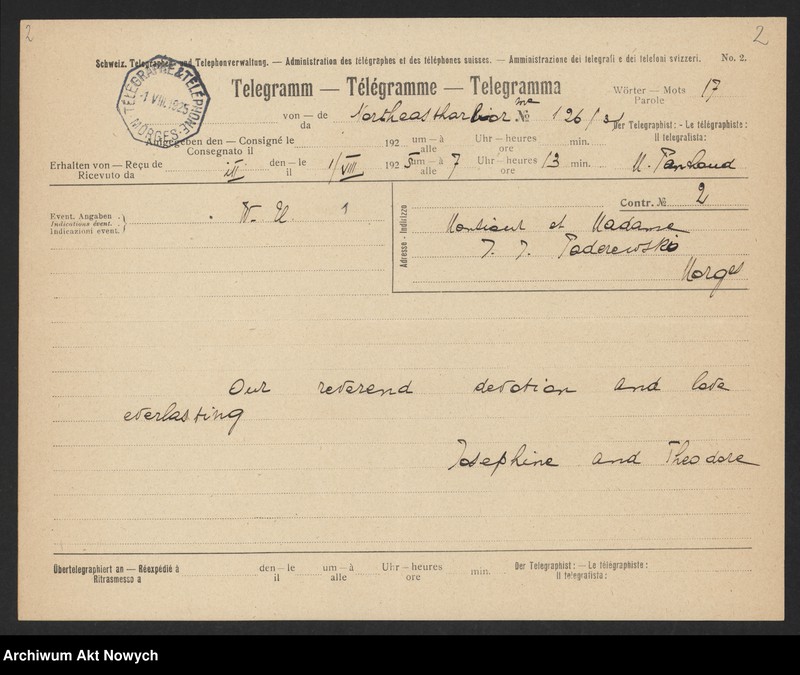 2
2
Schweiz. Telegraphen- und Telephonverwaltung. — Administration des télégraphes et des téléphones suisses. — Amministrazione dei telegrafi e dei telefoni svizzeri. No. 2.
TÉLÉGRAPHE & TÉLÉPHONE
-1 VIII. 1925
MORGES
Telegramm — Télégramme — Telegramma
Wörter — Mots 17
Parole
von — de Northeastharbor me № 126/31
da
Der Telegraphist: - Le télégraphiste:
Il telegrafista:
Aufgegeben den — Consigné le 192 um — à Uhr — heures min.
Consegnato il alle ore
Erhalten von — Reçu de den — le 1/VIII 1925 um — à 7 Uhr — heures 13 min.
Ricevuto da il alle ore
Event. Angaben
Indications évent.
Indicazioni event.
W. U. 1
Contr. № 2
Adresse - Indirizzo
Monsieur et Madame
J. J. Paderewski
Morges
Our reverend devotion and love
everlasting
Josephine and Theodore
Übertelegraphiert an — Réexpédié à den — le um — à Uhr — heures min. Der Telegraphist: — Le télégraphiste:
Ritrasmesso a il alle ore Il telegrafista:
Archiwum Akt Nowych